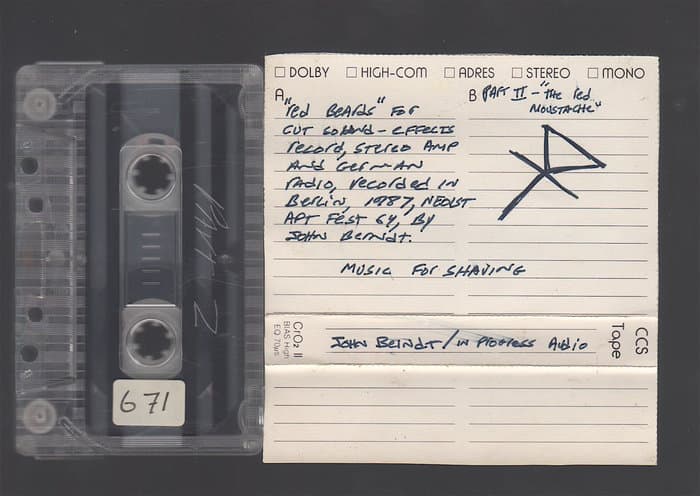 ☐ DOLBY ☐ HIGH-COM ☐ ADRES ☐ STEREO ☐ MONO
A
"Red Beards" FOR
CUT SOUND-EFFECTS
RECORD, STEREO AMP
AND GERMAN
RADIO, RECORDED IN
BERLIN, 1987, NEOIST
APT FEST 64, BY
JOHN BERNDT.
B PART II - "THE RED
MOUSTACHE"
MUSIC FOR SHAVING
CrO₂ II
BIAS High
EQ 70µs
JOHN BERNDT / IN PROGRESS AUDIO
CCS
Tape
PART 2
671